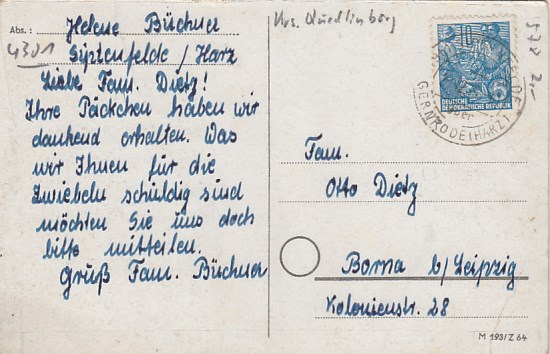 Abs.: Helene Büchner
4301
Siptenfelde / Harz
Liebe Fam. Dietz!
Ihre Päckchen haben wir
dankend erhalten. Was
wir Ihnen für die
Zwiebeln schuldig sind
möchten Sie uns doch
bitte mitteilen.
Gruß Fam. Büchner
Krs. Quedlinburg
578 2.-
DEUTSCHE
DEMOKRATISCHE REPUBLIK
über
GERNRODE (HARZ)
Fam.
Otto Dietz
Borna b/Leipzig
Kolonienstr. 28
M 193/Z 64